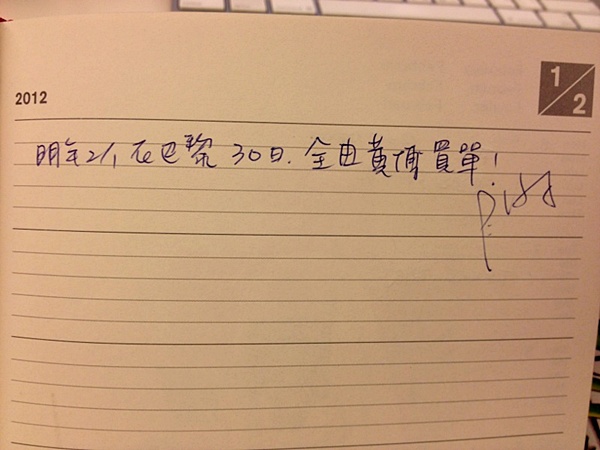 2012
1/2
明年2/1 在巴黎 30日. 全由黃買單!